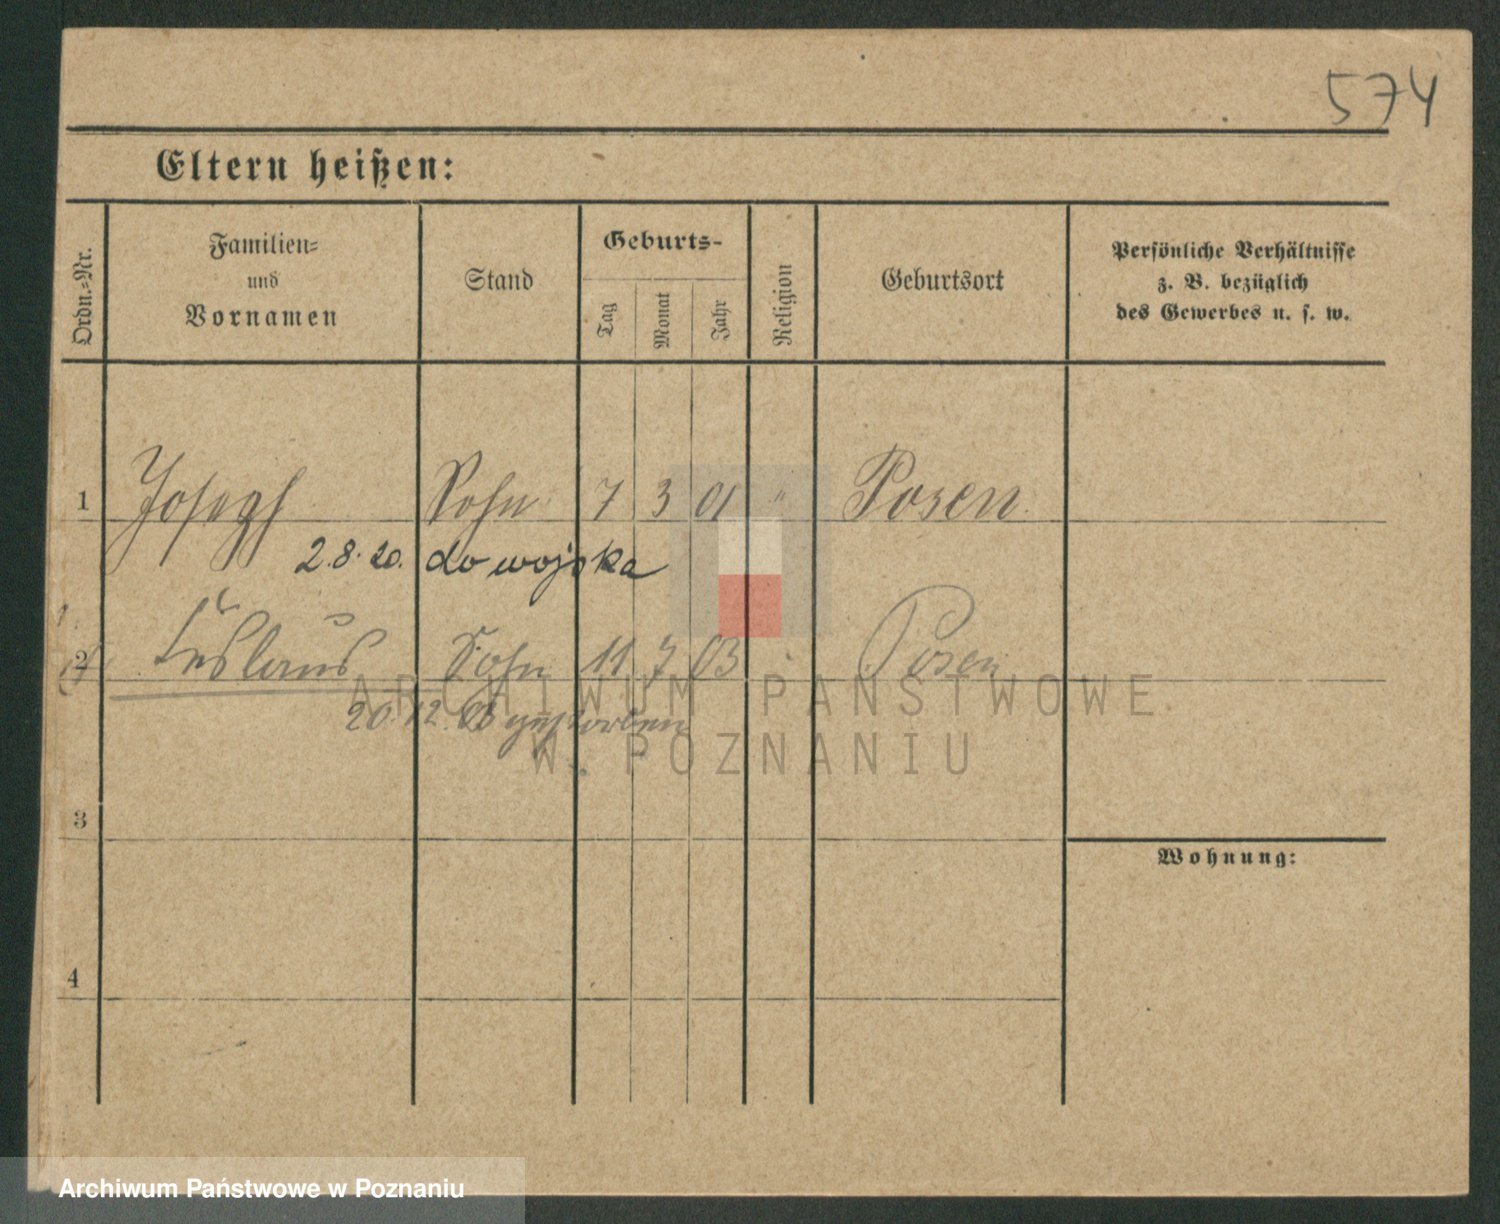 574
Eltern heißen:
Ordn.-Nr.
Familien-
und
Vornamen
Stand
Geburts-
Tag
Monat
Jahr
Religion
Geburtsort
Persönliche Verhältnisse
z. B. bezüglich
des Gewerbes u. s. w.
1 Joseph Sohn 7 3 01 " Posen
2.8.20. do wojska
2 Sohn 11 7 03 Posen
20.12.03 gestorben
3
Wohnung:
4
ARCHIWUM PAŃSTWOWE
W POZNANIU
Archiwum Państwowe w Poznaniu